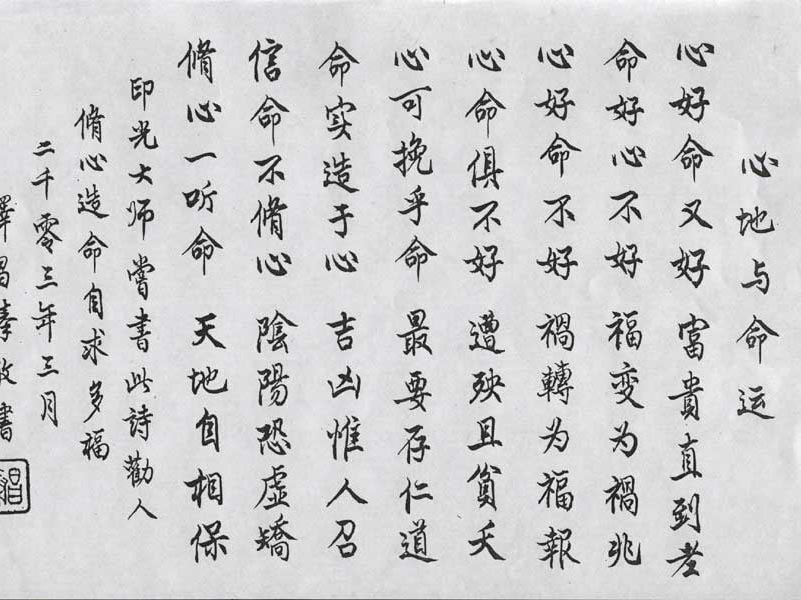 心地与命运
心好命又好 富貴直到老
命好心不好 福变为禍兆
心好命不好 禍轉为福報
心命俱不好 遭殃且貧夭
心可挽乎命 最要存仁道
命实造于心 吉凶惟人召
信命不脩心 陰陽恐虛矯
脩心一听命 天地自相保
印光大师嘗書此詩勸人
脩心造命自求多福
二千零三年三月